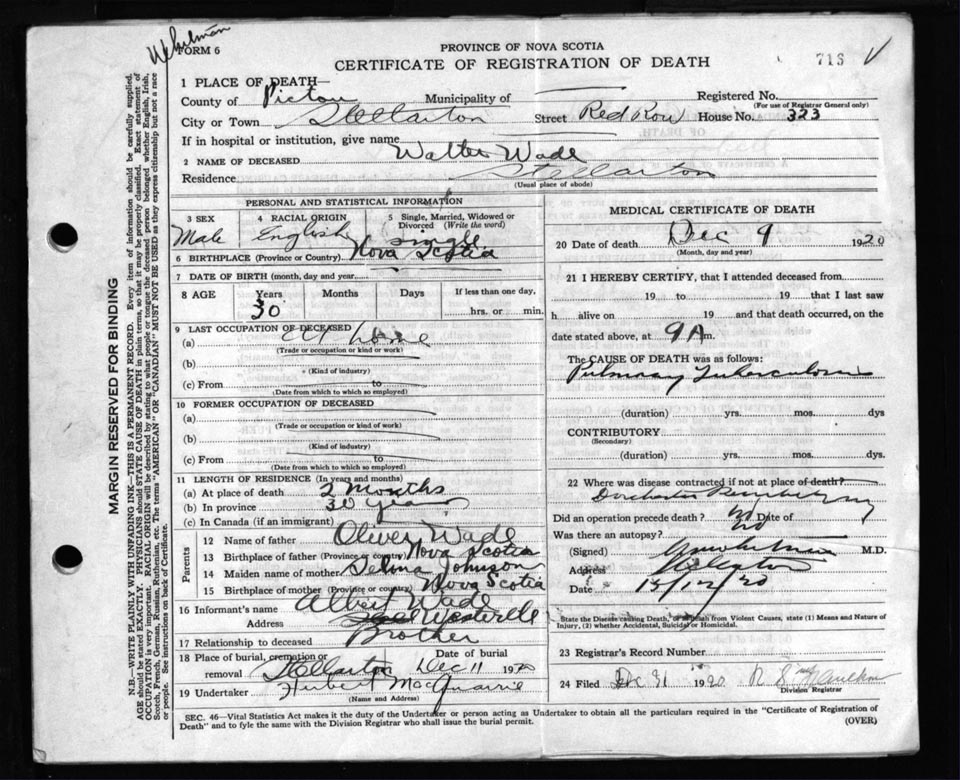 Whitman
FORM 6
PROVINCE OF NOVA SCOTIA
CERTIFICATE OF REGISTRATION OF DEATH
713
1 PLACE OF DEATH—
County of Pictou Municipality of Registered No.
(For use of Registrar General only)
City or Town Stellarton Street Red Row House No. 323
If in hospital or institution, give name
2 NAME OF DECEASED Walter Wade
Residence Stellarton
(Usual place of abode)
PERSONAL AND STATISTICAL INFORMATION
3 SEX Male
4 RACIAL ORIGIN English
5 Single, Married, Widowed or Divorced (Write the word) single
6 BIRTHPLACE (Province or Country) Nova Scotia
7 DATE OF BIRTH (month, day and year)
8 AGE Years Months Days If less than one day,
30 hrs. or min.
9 LAST OCCUPATION OF DECEASED
(a) At home
(Trade or occupation or kind or work)
(b)
(Kind of industry)
(c) From to
(Date from which to which so employed)
10 FORMER OCCUPATION OF DECEASED
(a)
(Trade or occupation or kind of work)
(b)
(Kind of industry)
(c) From to
(Date from which to which so employed)
11 LENGTH OF RESIDENCE (In years and months)
(a) At place of death 2 Months
(b) In province 30 years
(c) In Canada (if an immigrant)
Parents
12 Name of father Oliver Wade
13 Birthplace of father (Province or country) Nova Scotia
14 Maiden name of mother Johnson
15 Birthplace of mother (Province or country) Nova Scotia
16 Informant's name Albert Wade
Address Westville
17 Relationship to deceased Brother
18 Place of burial, cremation or removal Stellarton Date of burial Dec 11 1920
19 Undertaker Hubert MacQuarrie
(Name and Address)
MEDICAL CERTIFICATE OF DEATH
20 Date of death Dec 9 1920
(Month, day and year)
21 I HEREBY CERTIFY, that I attended deceased from
19 to 19 that I last saw
h alive on 19 and that death occurred, on
date stated above, at 9 A m.
The CAUSE OF DEATH was as follows:
Pulmonary Tuberculosis
(duration) yrs. mos. dys
CONTRIBUTORY
(Secondary)
(duration) yrs. mos. dys.
22 Where was disease contracted if not at place of death?
Dorchester Penitentiary
Did an operation precede death? no Date of
Was there an autopsy? no
(Signed) M.D.
Address Stellarton
Date 13/12/20
State the Disease causing Death, or Death from Violent Causes, state (1) Means and Nature of Injury, (2) whether Accidental, Suicidal or Homicidal.
23 Registrar's Record Number
24 Filed Dec 31 1920
Division Registrar
SEC. 46—Vital Statistics Act makes it the duty of the Undertaker or person acting as Undertaker to obtain all the particulars required in the "Certificate of Registration of
Death" and to fyle the same with the Division Registrar who shall issue the burial permit. (OVER)
MARGIN RESERVED FOR BINDING
N.B.—WRITE PLAINLY WITH UNFADING INK—THIS IS A PERMANENT RECORD. Every item of information should be carefully supplied.
AGE should be stated EXACTLY. PHYSICIANS should STATE CAUSE OF DEATH in plain terms, so that it may be properly classified. Exact statement of
OCCUPATION is very important. RACIAL ORIGIN will be described by stating to what people or tongue the deceased person belonged whether English, Irish,
Scotch, French, German, Russian, Ruthenian, etc. The terms "AMERICAN" OR "CANADIAN" MUST NOT BE USED as they express citizenship but not a race
or people. See instructions on back of Certificate.